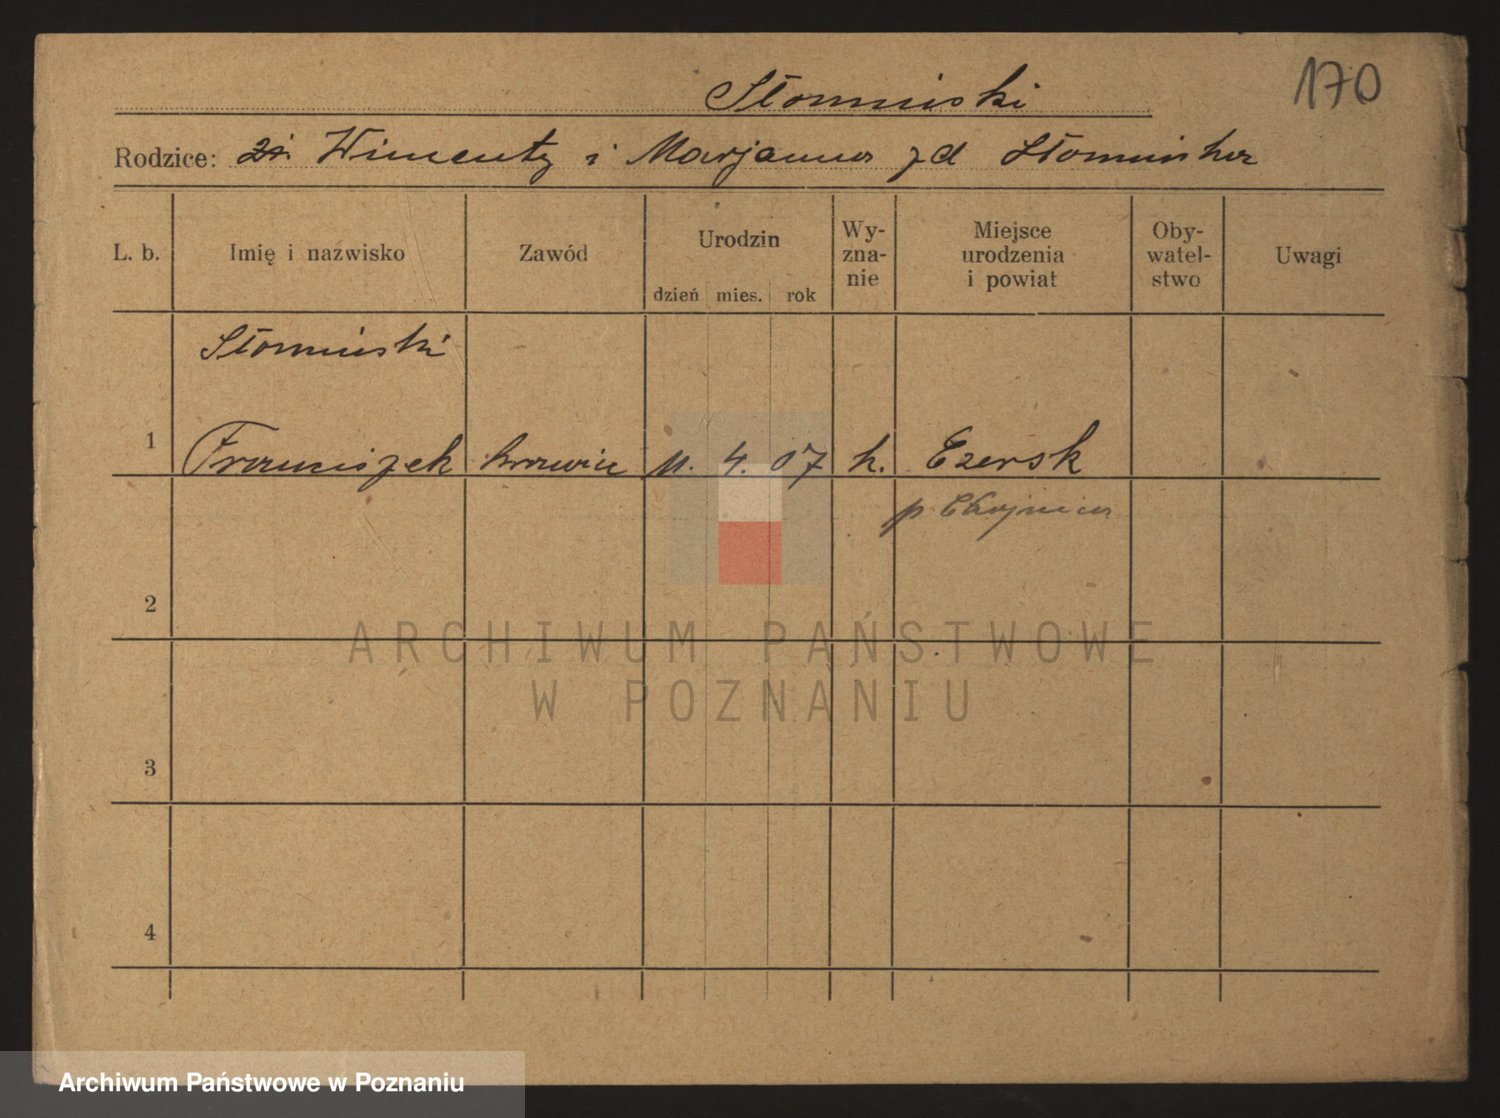 Słominski
170
Rodzice: Wincenty i Marjanna zd Słominska
L. b. Imię i nazwisko Zawód Urodzin dzień mies. rok Wy-zna-nie Miejsce urodzenia i powiat Oby-watel-stwo Uwagi
Słominski
1 Franciszek krawiec 11. 4. 07 k. Czersk
p Chojnice
2
3
4
ARCHIWUM PAŃSTWOWE
W POZNANIU
Archiwum Państwowe w Poznaniu